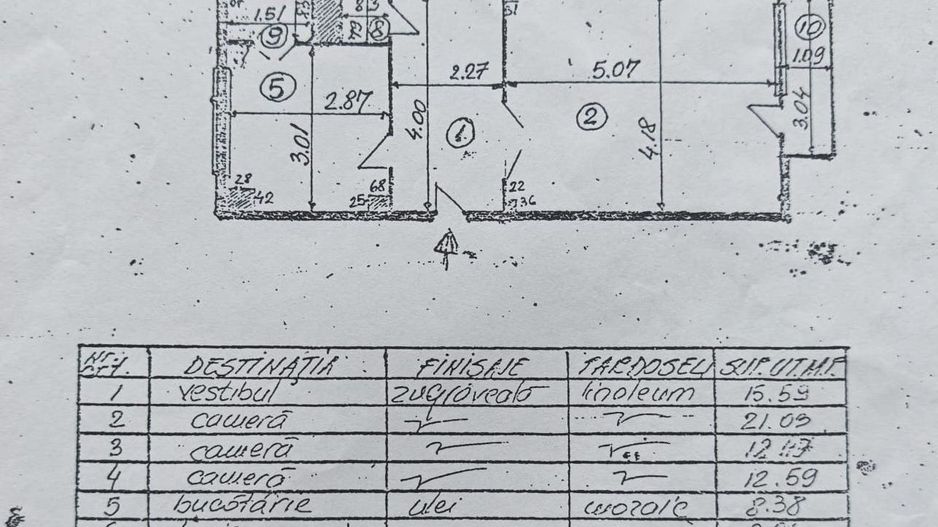 1.51
9
8
10
1.09
5
2.27
5.07
2.87
4.00
1
2
3.04
3.01
4.18
28
42
68
25
22
36
NR. CRT. DESTINAȚIA FINISAJE PARDOSELI SUP.UT.MP.
1 vestibul zugrăveală linoleum 15.59
2 cameră 21.09
3 cameră
4 cameră 12.59
5 bucătărie ulei mozaic 8.38